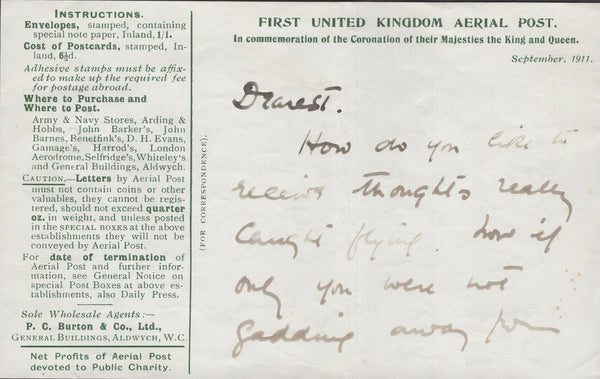 INSTRUCTIONS.
Envelopes, stamped, containing
special note paper, Inland, 1/1.
Cost of Postcards, stamped, In-
land, 6½d.
Adhesive stamps must be affix-
ed to make up the required fee
for postage abroad.
Where to Purchase and
Where to Post.
Army & Navy Stores, Arding &
Hobbs, John Barker's, John
Barnes, Benetfink's, D. H. Evans,
Gamage's, Harrod's, London
Aerodrome, Selfridge's, Whiteley's
and General Buildings, Aldwych.
CAUTION.—Letters by Aerial Post
must not contain coins or other
valuables, they cannot be regis-
tered, should not exceed quarter
oz. in weight, and unless posted
in the SPECIAL BOXES at the above
establishments they will not be
conveyed by Aerial Post.
For date of termination of
Aerial Post and further infor-
mation, see General Notice on
special Post Boxes at above es-
tablishments, also Daily Press.
Sole Wholesale Agents:—
P. C. Burton & Co., Ltd.,
GENERAL BUILDINGS, ALDWYCH, W.C.
Net Profits of Aerial Post
devoted to Public Charity.
(FOR CORRESPONDENCE).
FIRST UNITED KINGDOM AERIAL POST.
In commemoration of the Coronation of their Majesties the King and Queen.
September, 1911.
Dearest.
How do you like to
receive thoughts really
caught flying. now if
only you were not
gadding away from